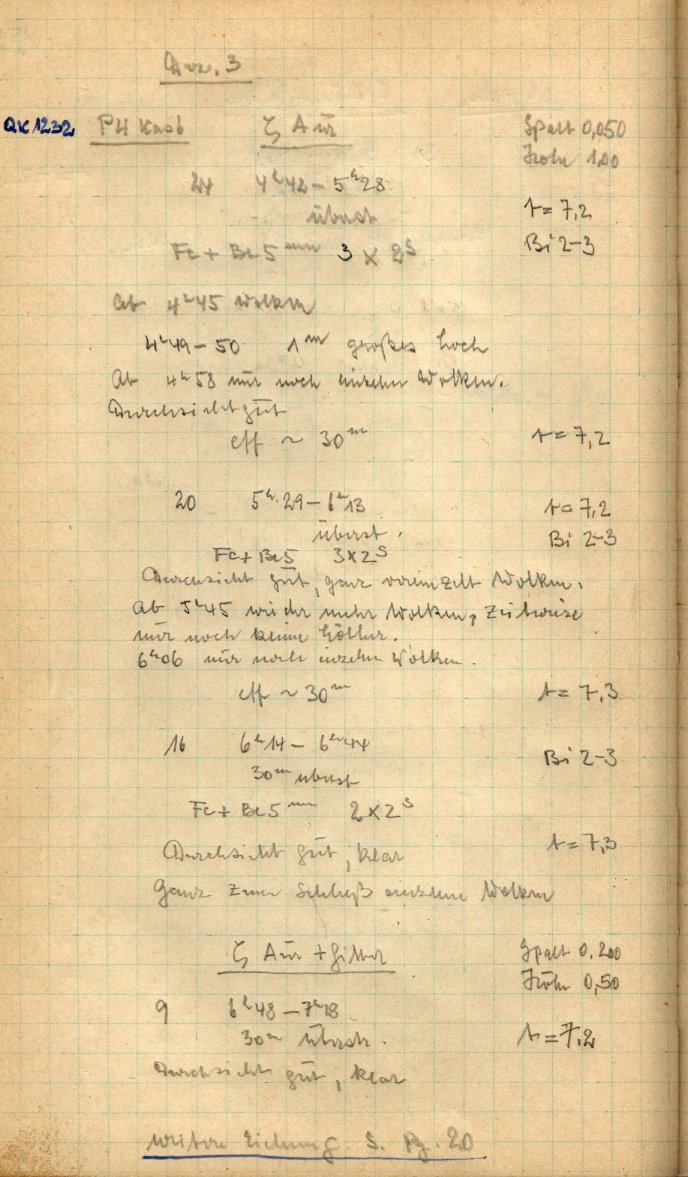 Dez. 3
QK 1232 P4 Kas6 ζ Aur Spalt 0,050
Höhe 1,00
24 4ʰ42 – 5ʰ28
t = 7,2
überst
Bi 2-3
Fe + Be5 mm 3 x 2ˢ
Ab 4ʰ45 Wolken
4ʰ49 – 50 1ᵐ großes Loch
Ab 4ʰ58 nur noch einzelne Wolken.
Durchsicht gut
eff ~ 30ᵐ t = 7,2
20 5ʰ29 – 6ʰ13 t = 7,2
überst. Bi 2-3
Fe + Be5 3x2ˢ
Durchsicht gut, ganz vereinzelt Wolken.
Ab 5ʰ45 wieder mehr Wolken, zeitweise
nur noch keine
6ʰ06 nur noch einzelne Wolken.
eff ~ 30ᵐ t = 7,3
16 6ʰ14 – 6ʰ44 Bi 2-3
30ᵐ überst
Fe + Be5 mm 2x2ˢ
Durchsicht gut, klar t = 7,3
Ganz zum Schluß einzelne Wolken
ζ Aur + Gitter Spalt 0,200
Höhe 0,50
9 6ʰ48 – 7ʰ18
30ᵐ überst. t = 7,2
Durchsicht gut, klar
weitere Eichung S. Pg. 20